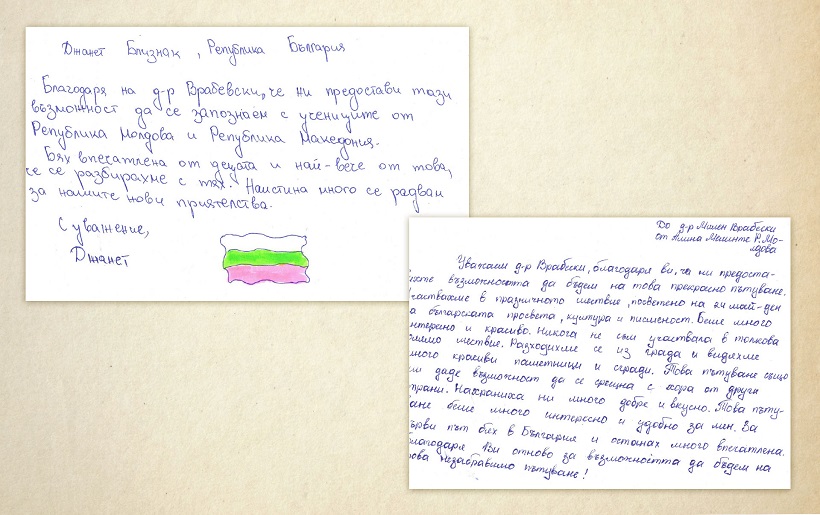 Джанет Близнак, Република България
Благодаря на д-р Врабевски, че ни предостави тази
възможност да се запознаем с учениците от
Република Молдова и Република Македония.
Бях впечатлена от децата и най-вече от това,
че се разбирахме с тях. Наистина много се радвам
за нашите нови приятелства.
С уважение,
Джанет
До д-р Милен Врабески
от Алина Р. Мо-
лдова
Уважаеми д-р Врабески, благодаря ви, че ни предоста-
възможността да бъдем на това прекрасно пътуване.
частвахме в празничното шествие, посветено на 24 май-ден
а българската просвета, култура и писменост. Беше много
нтерено и красиво. Никога не съм участвала в толкова
шествие. Разходихме се из града и видяхме
много красиви паметници и сгради. Това пътуване също
ми даде възможност да се срещна с хора от други
трани. Нахраниха ни много добре и вкусно. Това пъту-
ане беше много интересно и удобно за мен. За
първи път бях в България и останах много впечатлена.
Благодаря Ви отново за възможността да бъдем на
това незабравимо пътуване!